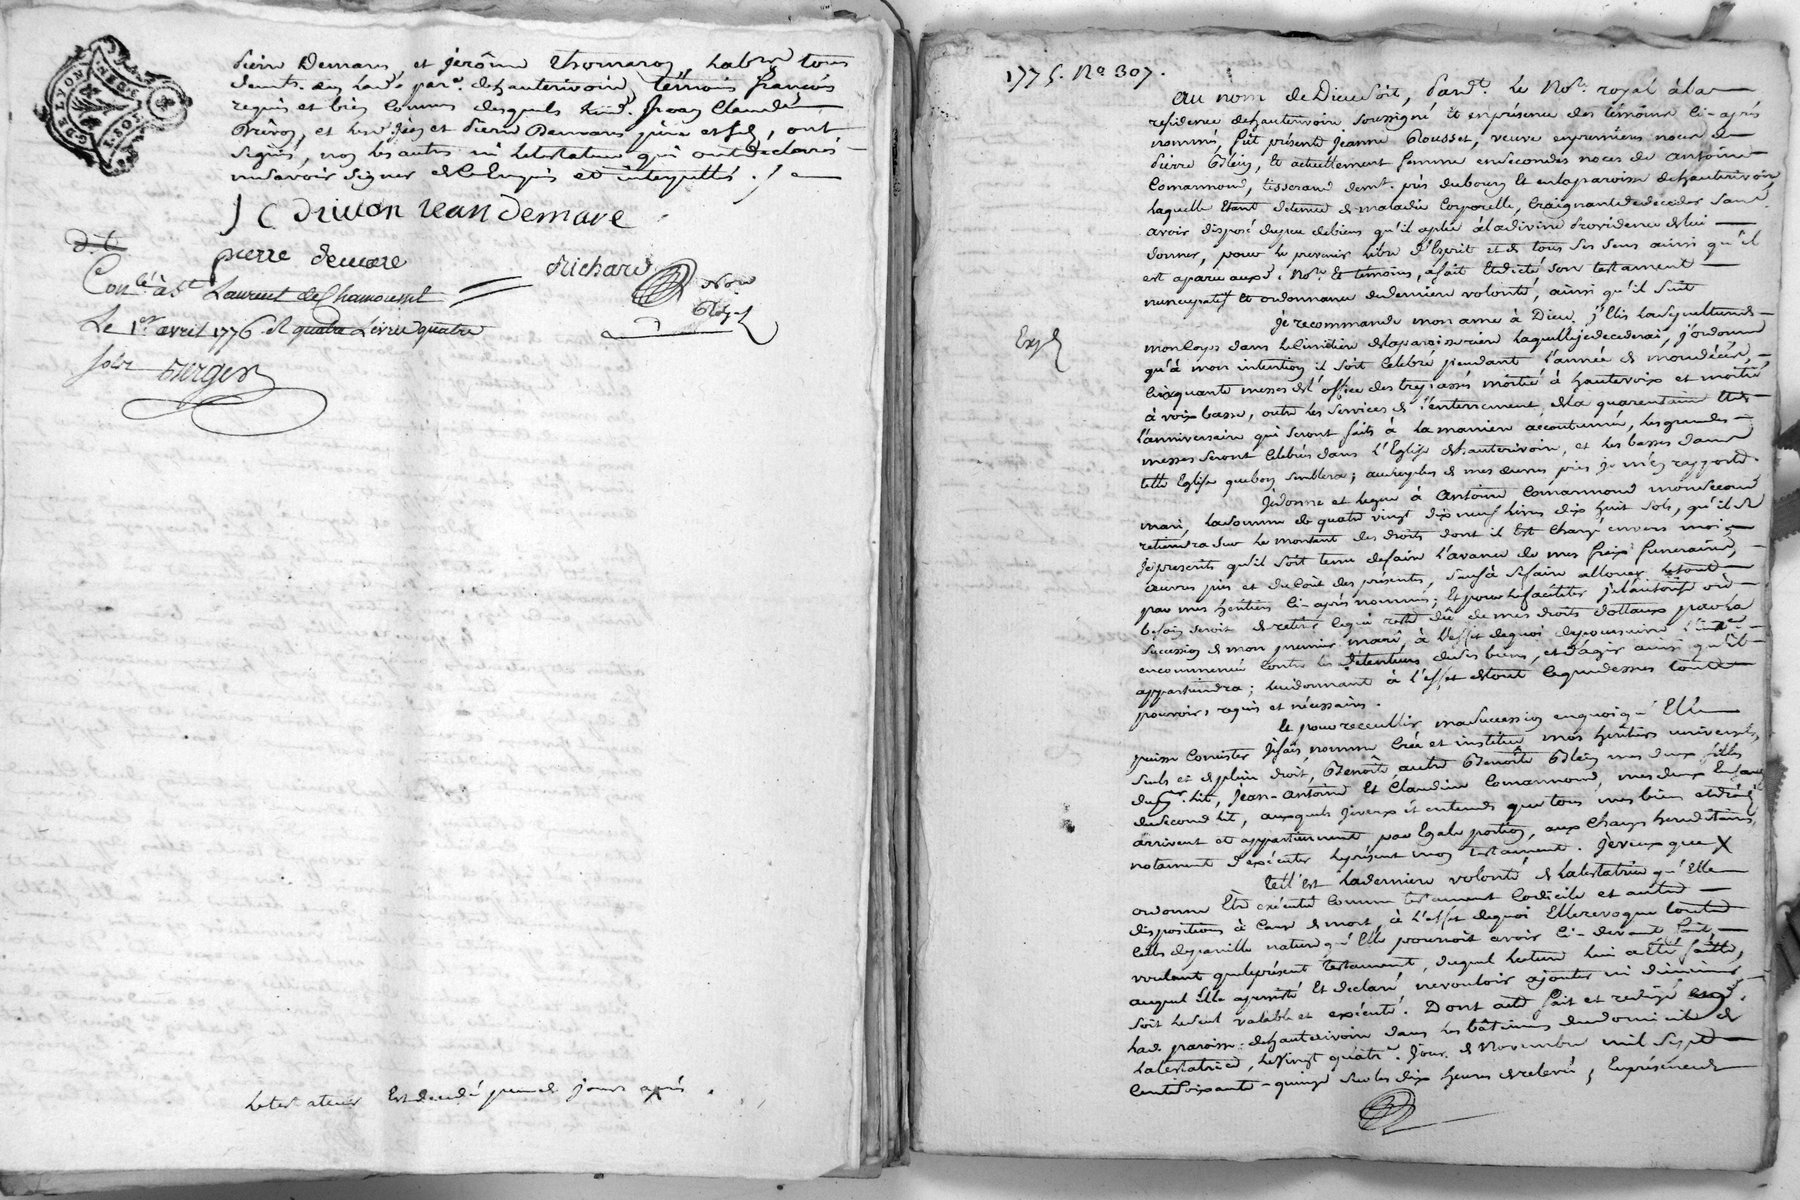 GEN. DE LYON
pierre Demare, et jérôme thomeron, habts. tous
demts. en lade. parse. dehauterivoire, témoins françois
requis et bien connus desquels Sieur Jean Claude
Drivon, et les Jean et Pierre Demare père et fils, ont
signés, non les autres ni letestateur qui ont declarés
ne savoir signer de ce enquis et interpellés. /
J C Drivon Jean Demare
pierre demare
Richard
Nore
Con.lé à St Laurent de Chamousset
Le 1er avril 1776 R quatre Livres quatre
sols Berger
Letestateur Est decedé peu de jours après.
1775. No 307.
Au nom de Dieu soit, Pardt. le Nore. royal à la
residence dehauterivoire soussigné et enpresence des témoins ci-après
nommés, fut présente Jeanne Rousset, veuve enpremières noces de
Pierre Blein, Et actuellement femme ensecondes noces de Antoine
Comarmond, tisserand demt. près dubourg Et enlaparoisse dehauterivoire,
laquelle Etant detenue de maladie Corporelle, Craignant de deceder Sans
avoir disposé dupeu debiens qu'il aplu àladivine Providence delui
donner, pour le present libre d'Esprit et de tous ses sens ainsi qu'il
est aparu auxd. Nore. Et témoins, afait Etdicté son testament
nuncupatif Et ordonnance dederniere volonté, ainsi qu'il suit
Je recommande mon ame à Dieu, j'Elis lasepulture de
Exp.
mon Corps dans leCimetière delaparoisse rière laquelle jedecederai, j'ordonne
qu'à mon intention il soit Celebré pendant l'année de mondécès,
Cinquante messes de l'office des trepassés moitié à hautevoix et moitié
à voix basse, outre les services de l'enterrement, dela quarantaine Etde
l'anniversaire qui seront faits à la maniere accoutumée, les grandes
messes seront Celebrées dans l'Eglise dehauterivoire, et les basses dans
telle Eglise quebon semblera; ausurplus de mes œuvres pies je m'en rapporte.
Jedonne et legue à Antoine Comarmond monsecond
mari, lasomme de quatre vingt dix neuf livres dix huit sols, qu'il se
retiendra sur le montant des droits dont il Est Chargé envers moi;
Jeprescrits qu'il soit tenu defaire l'avance de mes frais funeraires,
œuvres pies et du Coût des présentes, saufà sefaire allouer letout
par mes heritiers ci-après nommés; Et pour lefaciliter jel'autorise où
besoin seroit deretirer cequi reste dû de mes droits dottaux par la
succession de mon premier mari, à l'effet dequoi depoursuivre
encommencée contre les détenteurs deses biens, et d'agir ainsi qu'il
appartiendra; luidonnant à l'effet detout cequedessus toute
pouvoirs requis et nécessaires.
Et pour recueillir masuccession enquoi qu'Elle
puisse Consister Jefais, nomme, Crée et institue mes héritiers universels,
seuls et de plein droit, Benoîte, autre Benoîte Blein mes deux filles
du Per. lit, Jean-Antoine Et Claudine Comarmond, mes deux Enfants
dusecond lit, auxquels jeveux et entends que tous mes biens etdroits
arrivent et appartiennent par Egale portion, aux Charges hereditaires,
notament d'exécuter leprésent mon testament. Jeveux que X
Tell'Est laderniere volonté de latestatrice qu'Elle
ordonne Etre exécutée comme testament Codicile et autre
dispositions à Cause de mort, à l'effet dequoi Ellerevoque toutes
Celles depareille nature qu'Elle pourroit avoir ci-devant fait,
voulant queleprésent testament, duquel lecture lui aété faitte,
auquel Elle apersisté Et declaré nevouloir ajouter ni diminuer
soit leseul valable et exécuté. Dont acte fait et redigé
lad. paroisse dehauterivoire dans les bâtimens dudomicile de
latestatrice, levingt quatre. Jour de Novembre mil sept
centsoixante-quinze surles dix heures de relevé, Enprésence de